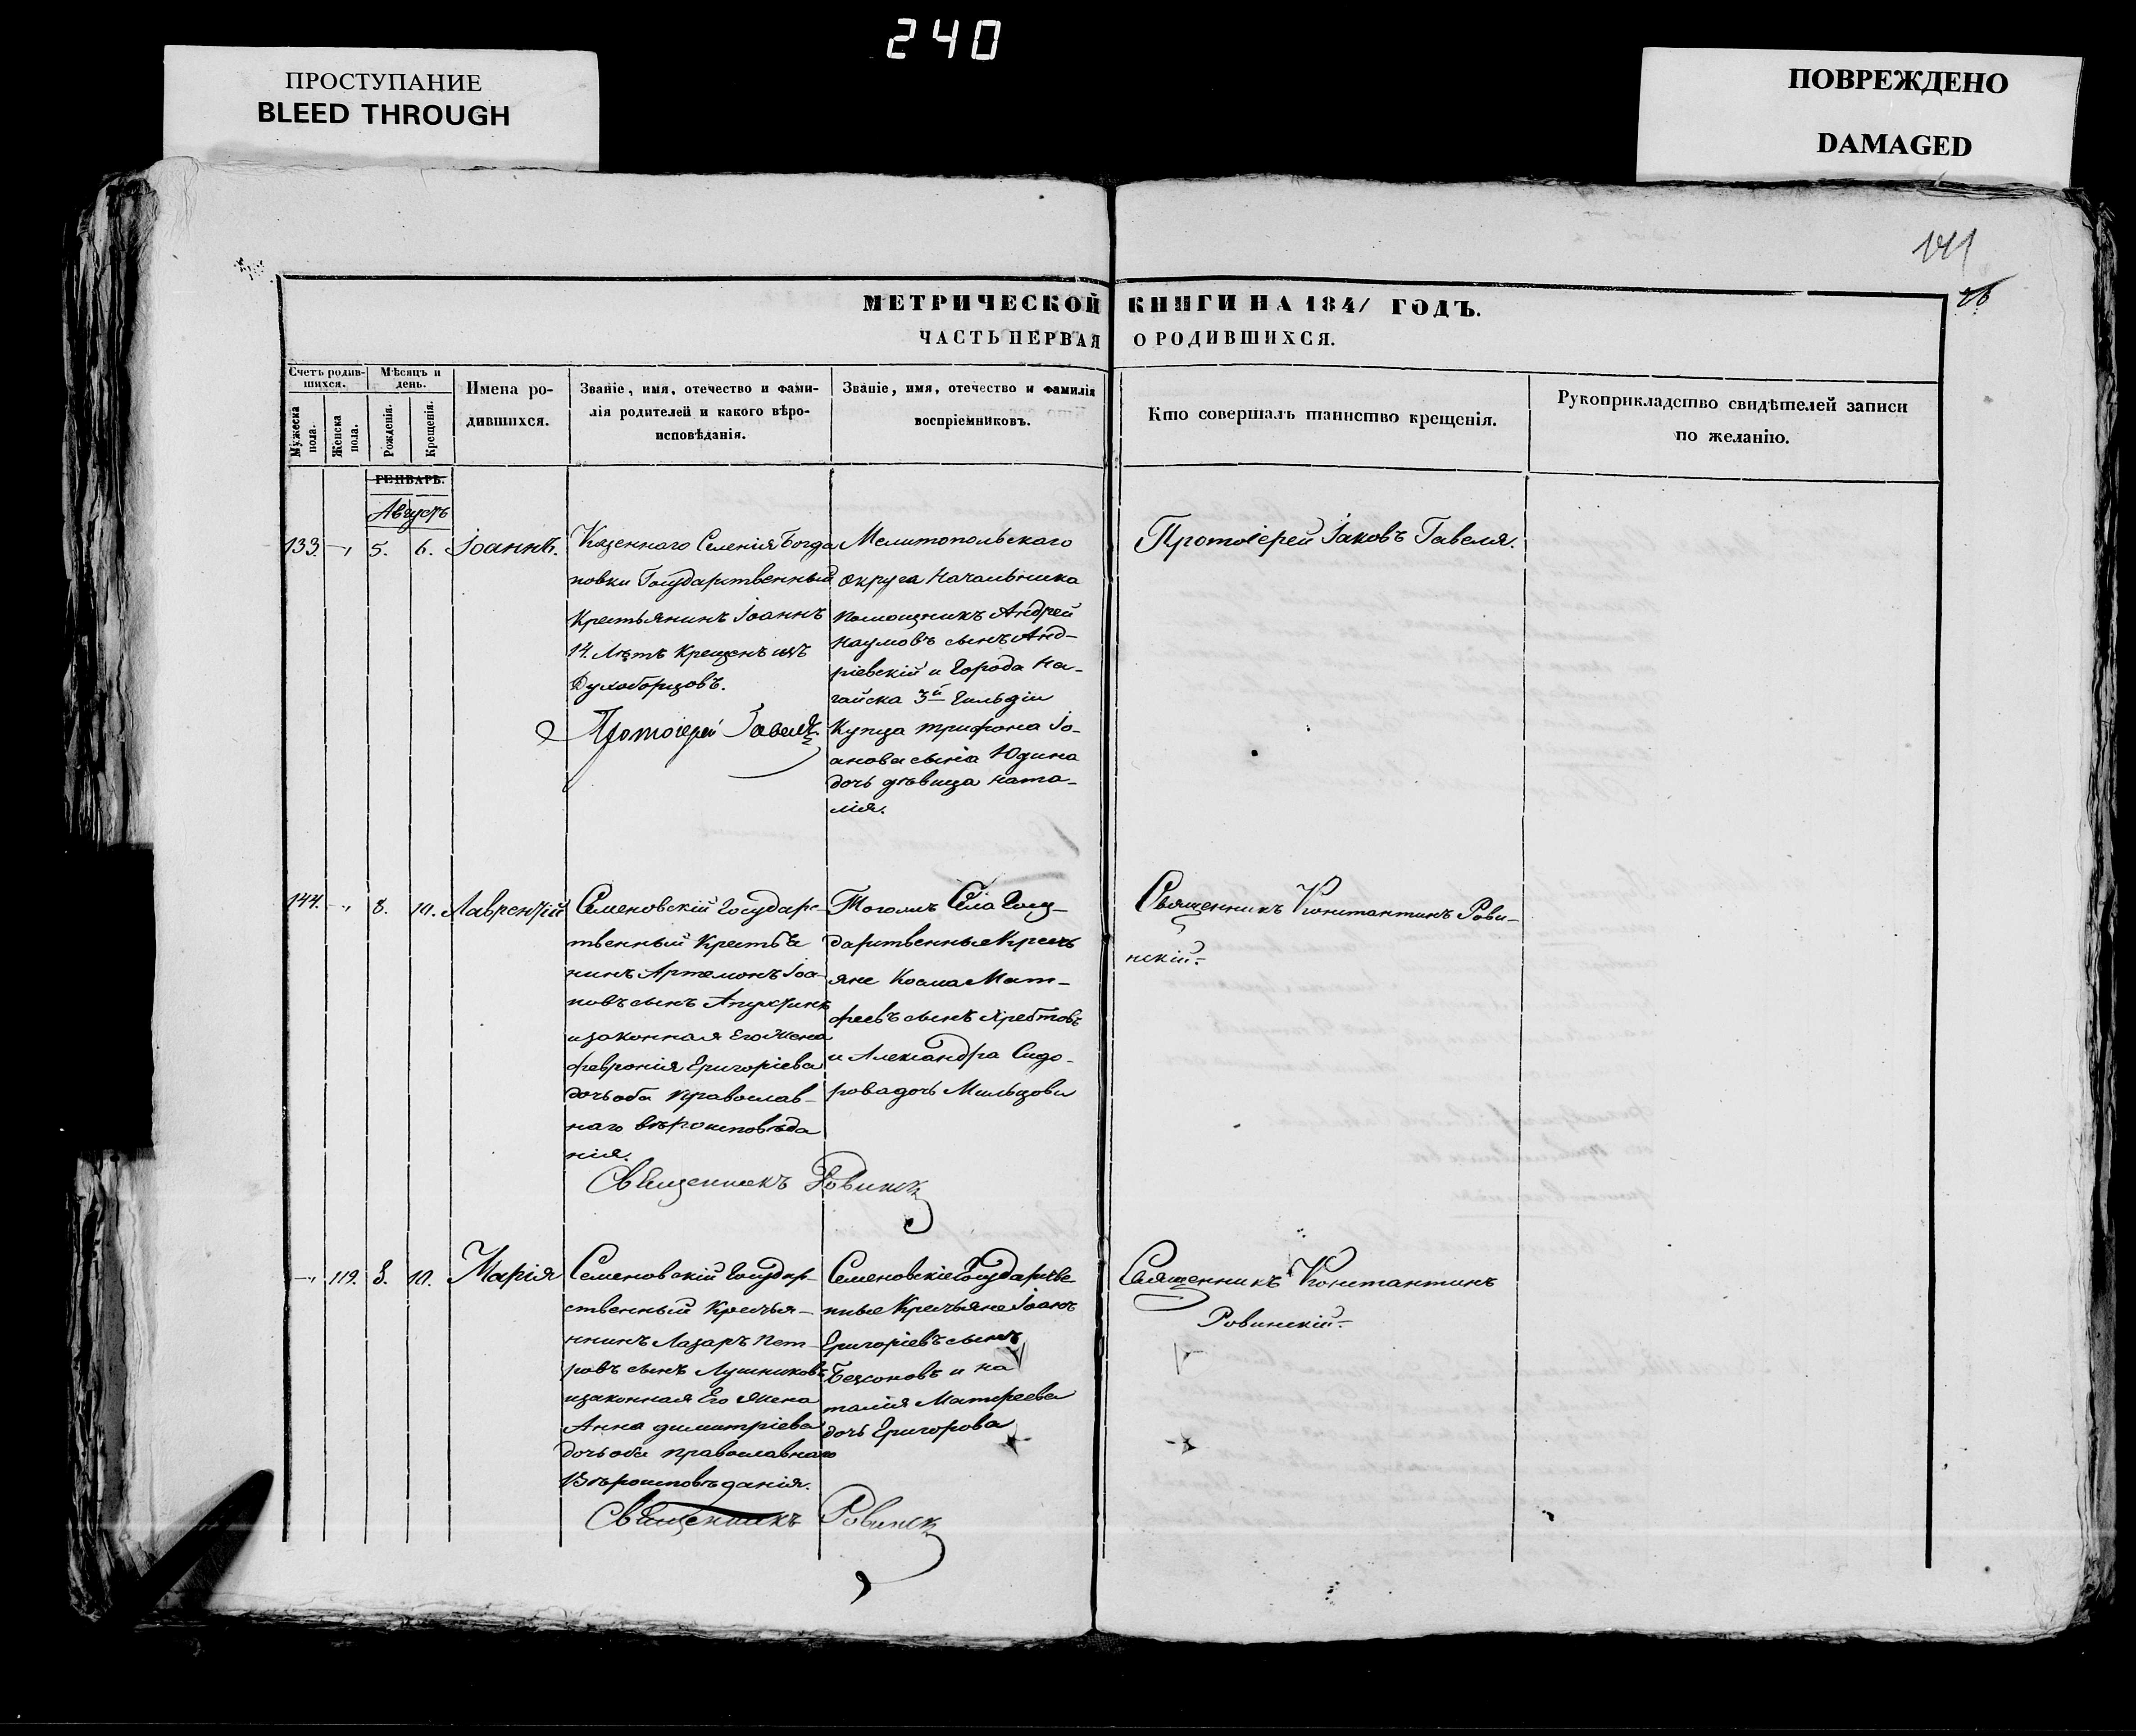 240
ПРОСТУПАНИЕ
BLEED THROUGH
ПОВРЕЖДЕНО
DAMAGED
МЕТРИЧЕСКОЙ КНИГИ НА 1841 ГОДЪ.
ЧАСТЬ ПЕРВАЯ О РОДИВШИХСЯ.
Счетъ родив-
шихся.
Мужеска пола.
Женска пола.
Мѣсяцъ и
день.
Рожденія.
Крещенія.
Имена ро-
дившихся.
Званіе, имя, отечество и фами-
лія родителей и какого вѣро-
исповѣданія.
Званіе, имя, отечество и фамилія
воспріемниковъ.
Кто совершалъ таинство крещенія.
Рукоприкладство свидѣтелей записи
по желанію.
ГЕНВАРЬ.
Августъ
133. 5. 6. Іоаннъ.
Казеннаго Селенія Богда
новки Государственный
Крестьянинъ Іоаннъ
14. Лѣтъ Крещенъ изъ
Духоборцовъ.
Протоіерей Гавеля
Мелитопольскаго
Округа Начальника
помощникъ Андрей
Наумовъ сынъ Анд-
ріевскій и Города На-
гайска 3й Гильдіи
Купца Трифона Іо-
анова сына Юдина
дочь дѣвица Ната-
лія.
Протоіерей Іаковъ Гавеля.
144. 8. 10. Лаврентій
Семеновскій Государс-
твенный Крестья
нинъ Артемонъ Іоа-
новъ сынъ
и законная Его Жена
Февронія Григоріева
дочь оба Православ-
наго вѣроисповѣда
нія.
Священникъ Ровинск
Тогожъ Села Госу-
дарственные Кресть
яне Косма Мат-
феевъ сынъ Хребтовъ
и Александра Сидо-
рова дочь Мильцова
Священникъ Константинъ Рови-
нскій.
119. 8. 10. Марія
Семеновскій Государ-
ственный Крестья-
нинъ Лазарь Пет-
ровъ сынъ Лушниковъ
и законная Его Жена
Анна Димитріева
дочь оба православнаго
Вѣроисповѣданія.
Священникъ Ровинск
Семеновскіе Государстве
нные Крестьяне Іоаннъ
Григоріевъ сынъ
Безсоновъ и На
талія Матфеева
дочь Григорова
Священникъ Константинъ
Ровинскій.